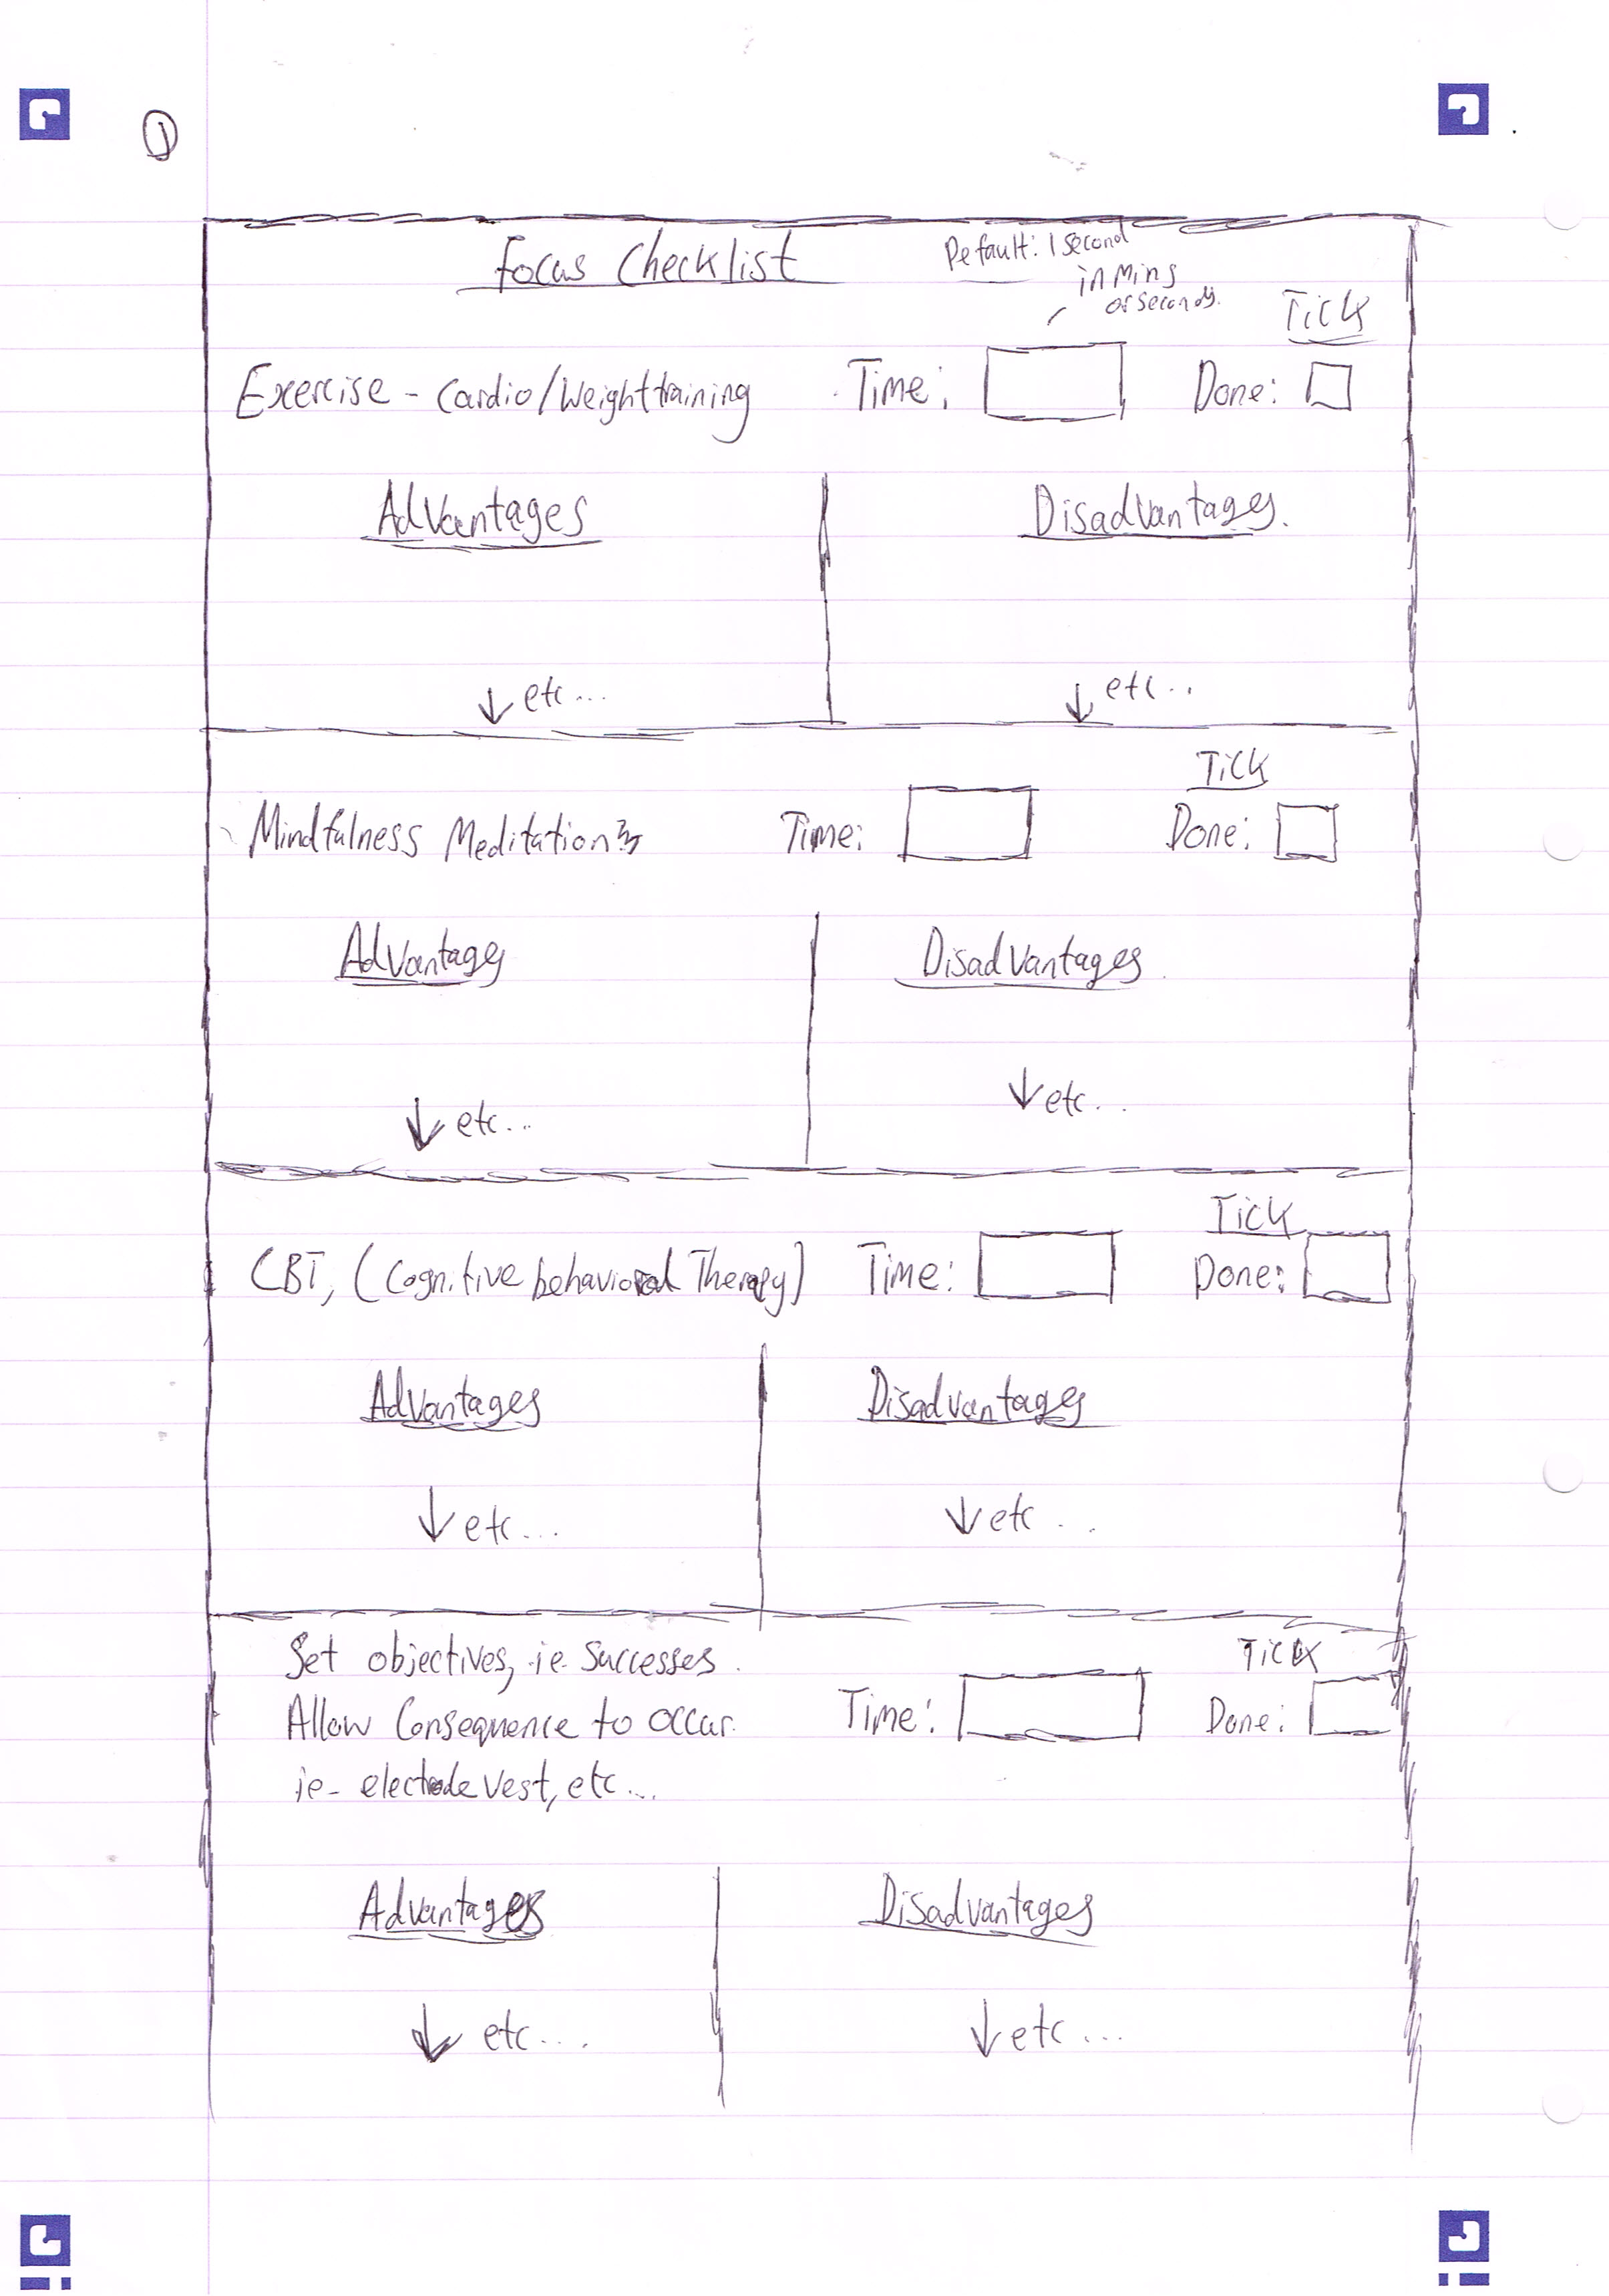 1
Focus Checklist
Default: 1 second
in Mins
or seconds.
Tick
Exercise - Cardio/Weight training Time: Done:
Advantages Disadvantages.
↓ etc... ↓ etc..
Tick
Mindfulness Meditation Time: Done:
Advantages Disadvantages
↓ etc... ↓ etc...
Tick
CBT, (Cognitive behavioral Therapy) Time: Done:
Advantages Disadvantages
↓ etc... ↓ etc...
Set objectives, ie. Successes. Tick
Allow Consequence to occur. Time: Done:
ie - electrode Vest, etc...
Advantages Disadvantages
↓ etc... ↓ etc...